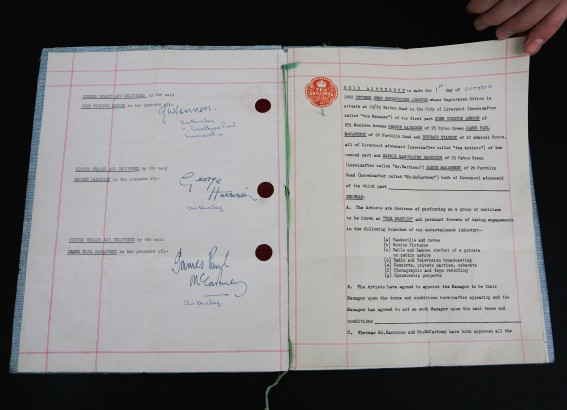 SIGNED SEALED AND DELIVERED by the said
JOHN WINSTON LENNON in the presence of:-
JWLennon.
SIGNED SEALED AND DELIVERED by the said
GEORGE HARRISON in the presence of:-
George
Harrison
SIGNED SEALED AND DELIVERED by the said
JAMES PAUL MCCARTNEY in the presence of:-
James Paul
McCartney
TEN
SHILLINGS
THIS AGREEMENT is made the 1st day of October
1962 BETWEEN NEMS ENTERPRISES LIMITED whose Registered Office is
situate at Walton Road in the City of Liverpool (hereinafter
called "the Manager") of the first part JOHN WINSTON LENNON of
251 Menlove Avenue GEORGE HARRISON of 25 Upton Green JAMES PAUL
MCCARTNEY of 20 Forthlin Road and RICHARD STARKEY of 10 Admiral Grove,
all of Liverpool aforesaid (hereinafter called "the Artists") of the
second part and HAROLD HARGREAVES HARRISON of 25 Upton Green
(hereinafter called "Mr.Harrison") JAMES MCCARTNEY of 20 Forthlin
Road (hereinafter called "Mr.McCartney") both of Liverpool aforesaid
of the third part
WHEREAS:
A. The Artists are desirous of performing as a group of musicians
to be known as "THE BEATLES" and pursuant thereto of taking engagements
in the following branches of the entertainment industry:-
(a) Vaudeville and revue
(b) Motion Pictures
(c) Balls and Dances whether of a private
or public nature
(d) Radio and Television broadcasting
(e) Concerts, private parties, cabarets
(f) Phonographic and tape recording
(g) Sponsorship projects
B. The Artists have agreed to appoint the Manager to be their
Manager upon the terms and conditions hereinafter appearing and the
Manager has agreed to act as such Manager upon the said terms and
conditions
C. Whereas Mr.Harrison and Mr.McCartney have both approved all the